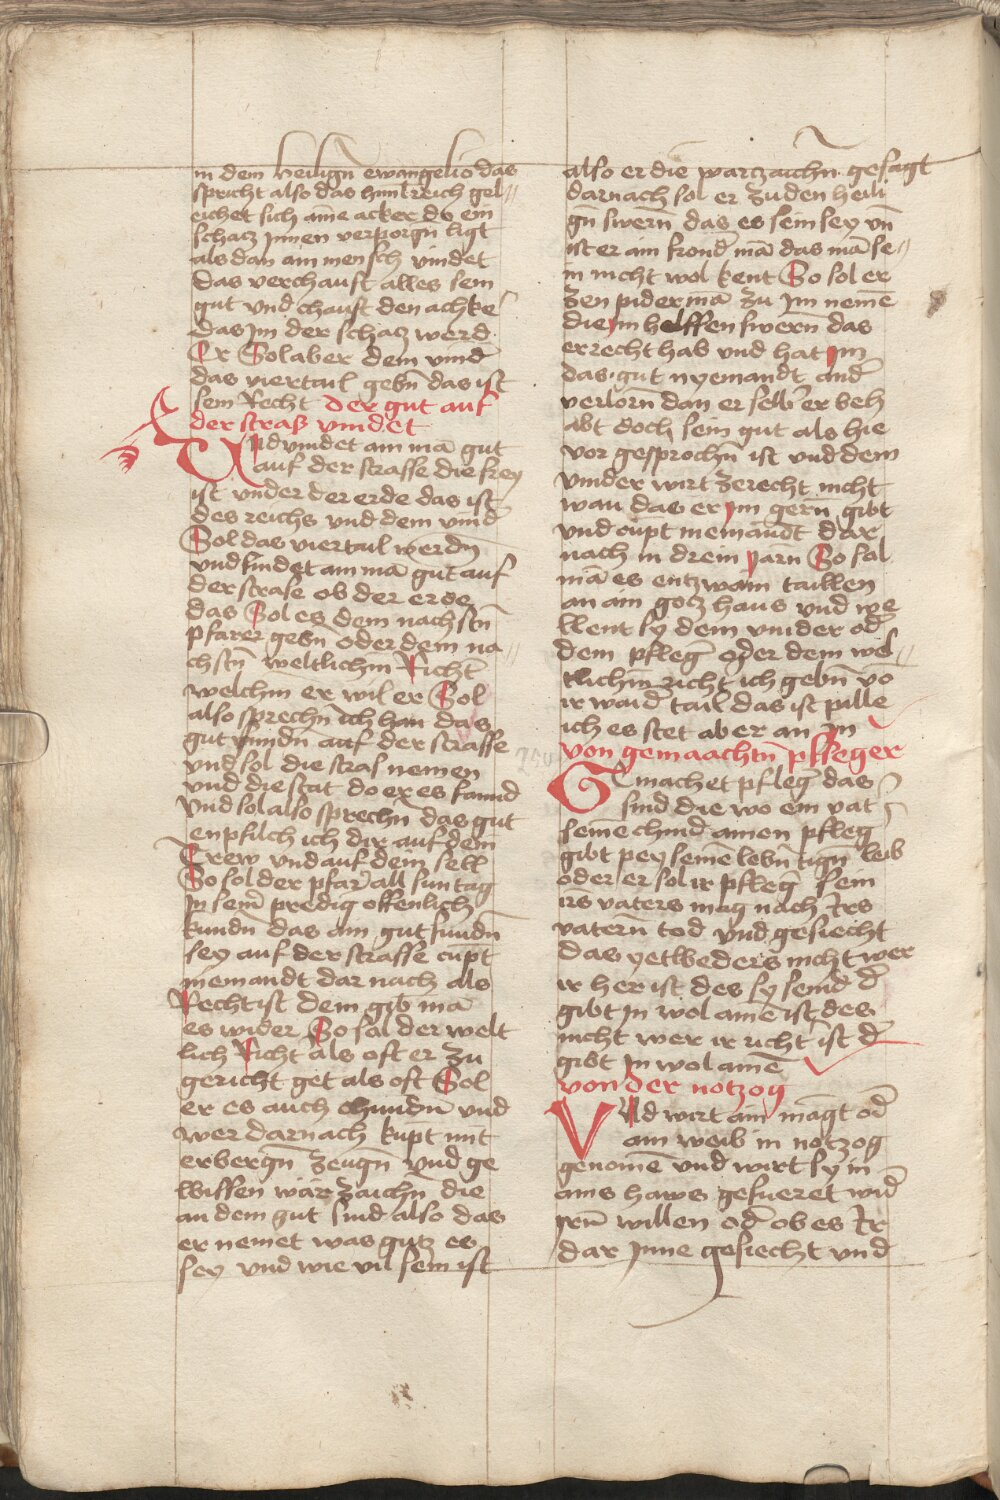 in dem heiligñ ewangelio das
spricht also das himlreich gel〃
eichet sich aine acker do ein
schacz Innen verporgñ ligt
als dan ain mensch vindet
das verchauft alles sein
gut vnd chauft den achke
das Im der schacz werd
Er Sol aber dem vind̄
das viertail gebñ das ist
sein Recht der gut auf
der straß vindet
Vnd vindet ain mā gut
auf der strasse die frey
ist vnder der erde das ist
des reichs vnd dem vind̄
Sol das viertail werdñ
vnd findet ain mā gut auf
der strase ob der erde
das Sol es dem nachstñ
pfarer gebñ oder dem na〃
chstñ weltlichm Richt̄
welchm er wil er Sol
also sprechñ ich han das
gut fundñ auf der strasse
vnd sol die stras nemen
vnd die stat do er es fannd
Vnd sol also sprechñ das gut
enpfilch ich dir auf dein
Trew vnd auf dein sell
So sol der pfar̄ all suntag
In sein̄ predig offenlich
kundñ das ain gut fundñ
sey auf der strasse cupt
niemandt dar nach als
Recht ist dem gib mā
es wider So sol der welt
lich Richt̄ als oft er zu
gericht get als oft Sol
er es auch chundñ vnd
wer darnach kupt mit
erbergñ zeugñ vnd ge
wissen warzaichñ die
an dem gut sind also das
er nemet was gutz es
sey vnd wie vil sein ist
also er die warzaichñ gesagt
darnach sol er zu den heili
gñ swerñ das es sein sey vñ
ist er ain frond̄ mā das mā se〃
in nicht wol kent So sol er
zen piderma zu Im nemē
die im helffen swerñ das
er recht hab vnd hat im
das gut nyemandt and̄
verlorñ dan er selb er beh
abt doch sein gut als hie
vor gesprochñ ist vnd dem
vinder wirt zerecht nicht
wan das er im gerñ gibt
vnd cupt niemandt dar
nach in drein jarn So sol
mā es entzwain taillen
an ain gotz haus vnd we
llent sy dem vinder od̄
dem pfleḡ oder dem wel〃
tlichm richt̄ ich gebñ vō
ir waid̄ tail das ist pille
ich es stet aber an in
von gemaachtñ pfleger
machet pfleḡ das
sind die wo ein vat̄
seinē chind ainen pfleḡ
gibt pey seinē lebñtign̄ leib
oder er sol ir pfleḡ sein
irs vaters mag nach Irs
vaterñ tod vnd gesiecht
das yetweders nicht wer
ir her ist des sy seind d̄
gibt In wol ainē ist des
nicht wer ir richt̄ ist d̄
gibt In wol ainē
von der notzog
Vnd wirt ain magt od̄
ain weib in notzog
genomē vnd wirt sy in
ains haws gefueret wid̄
irñ willen od̄ ob es Ir
dar Inne gesiecht vnd